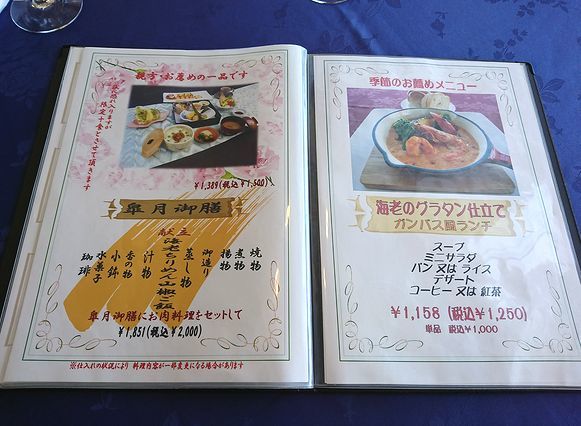 親方・お薦めの一品です
恐れ入りますが
限定十食とさせて頂きます
¥1,389(税込¥1,500)
皐月御膳
献立
焼物
煮物
揚物
御造り
蒸し物
海老ちりめん山椒ご飯
汁物
香の物
小鉢
水菓子
珈琲
皐月御膳にお肉料理をセットして
¥1,851(税込¥2,000)
※仕入れの状況により 料理内容が一部変更になる場合があります
季節のお薦めメニュー
海老のグラタン仕立て
ガンバス風ランチ
スープ
ミニサラダ
パン 又は ライス
デザート
コーヒー 又は 紅茶
¥1,158 (税込¥1,250)
単品 税込¥1,000